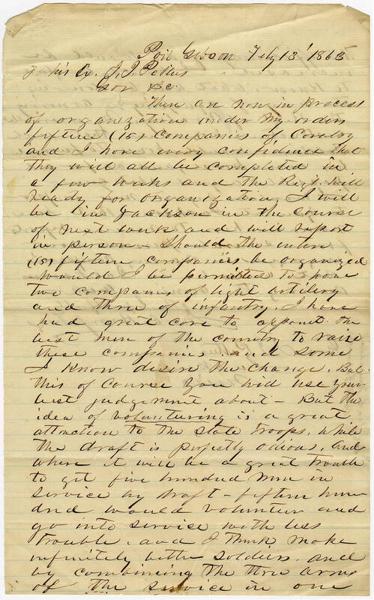 Port Gibson Feby 13' 1863
To his Ex. J. J. Pettus
Gov &c
There are now in process
of organization under my orders
fifteen (15) Companies of Cavalry
and I have every confidence that
they will all be completed in
a few weeks and the Regt. will
ready for organization. I will
be in Jackson in the course
of next week and will report
in person. Should the when
(15) fifteen companies be organized
would I be permitted to
two companies of light artillery
and three of infantry. I have
had great care to appoint the
best men of the country to raise
these companies and some
I know desire the change. But
this of Course you will use your
best judgement about - But the
idea of volunteering is a great
attraction to the State troops, while
the draft is perfectly odious, and
where it will be a great trouble
to get five hundred men in
service by draft - fifteen hun
dred would volunteer and
go into service with less
trouble, and I think make
infinitely better soldiers. and
by combining the three arms
of the service in one